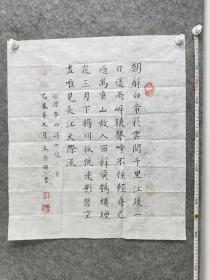 朝辭白帝彩雲間千里江陵一
日還兩岸猿聲啼不住輕舟已
過萬重山故人西辭黃鶴樓煙
花三月下揚州孤帆遠影碧空
盡唯見長江天際流
李白詩
乙未年 月 書